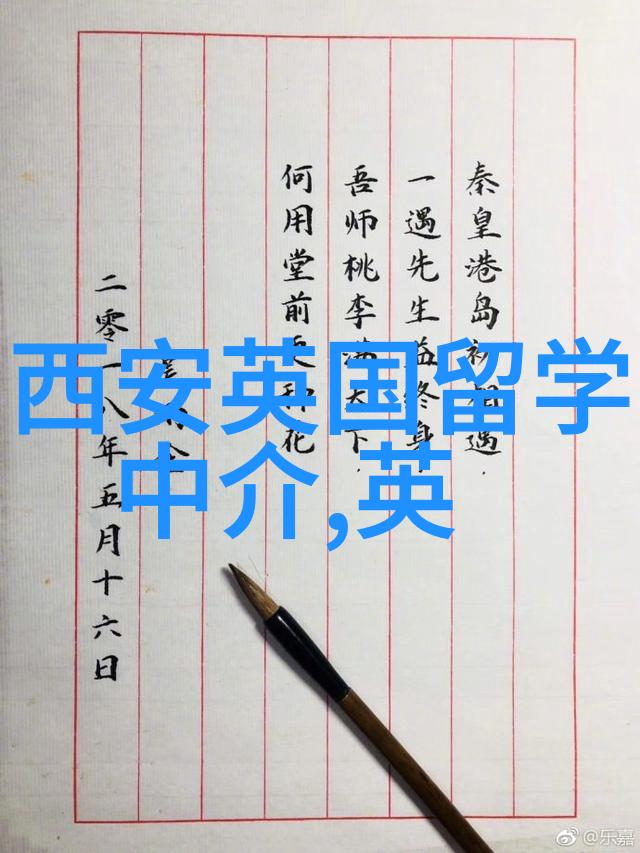 秦皇港岛初相遇
一遇先生益终身
吾师桃李满天下
何用堂前更种花
二零一八年五月十六日
西安英国留学
中介,英
@乐嘉